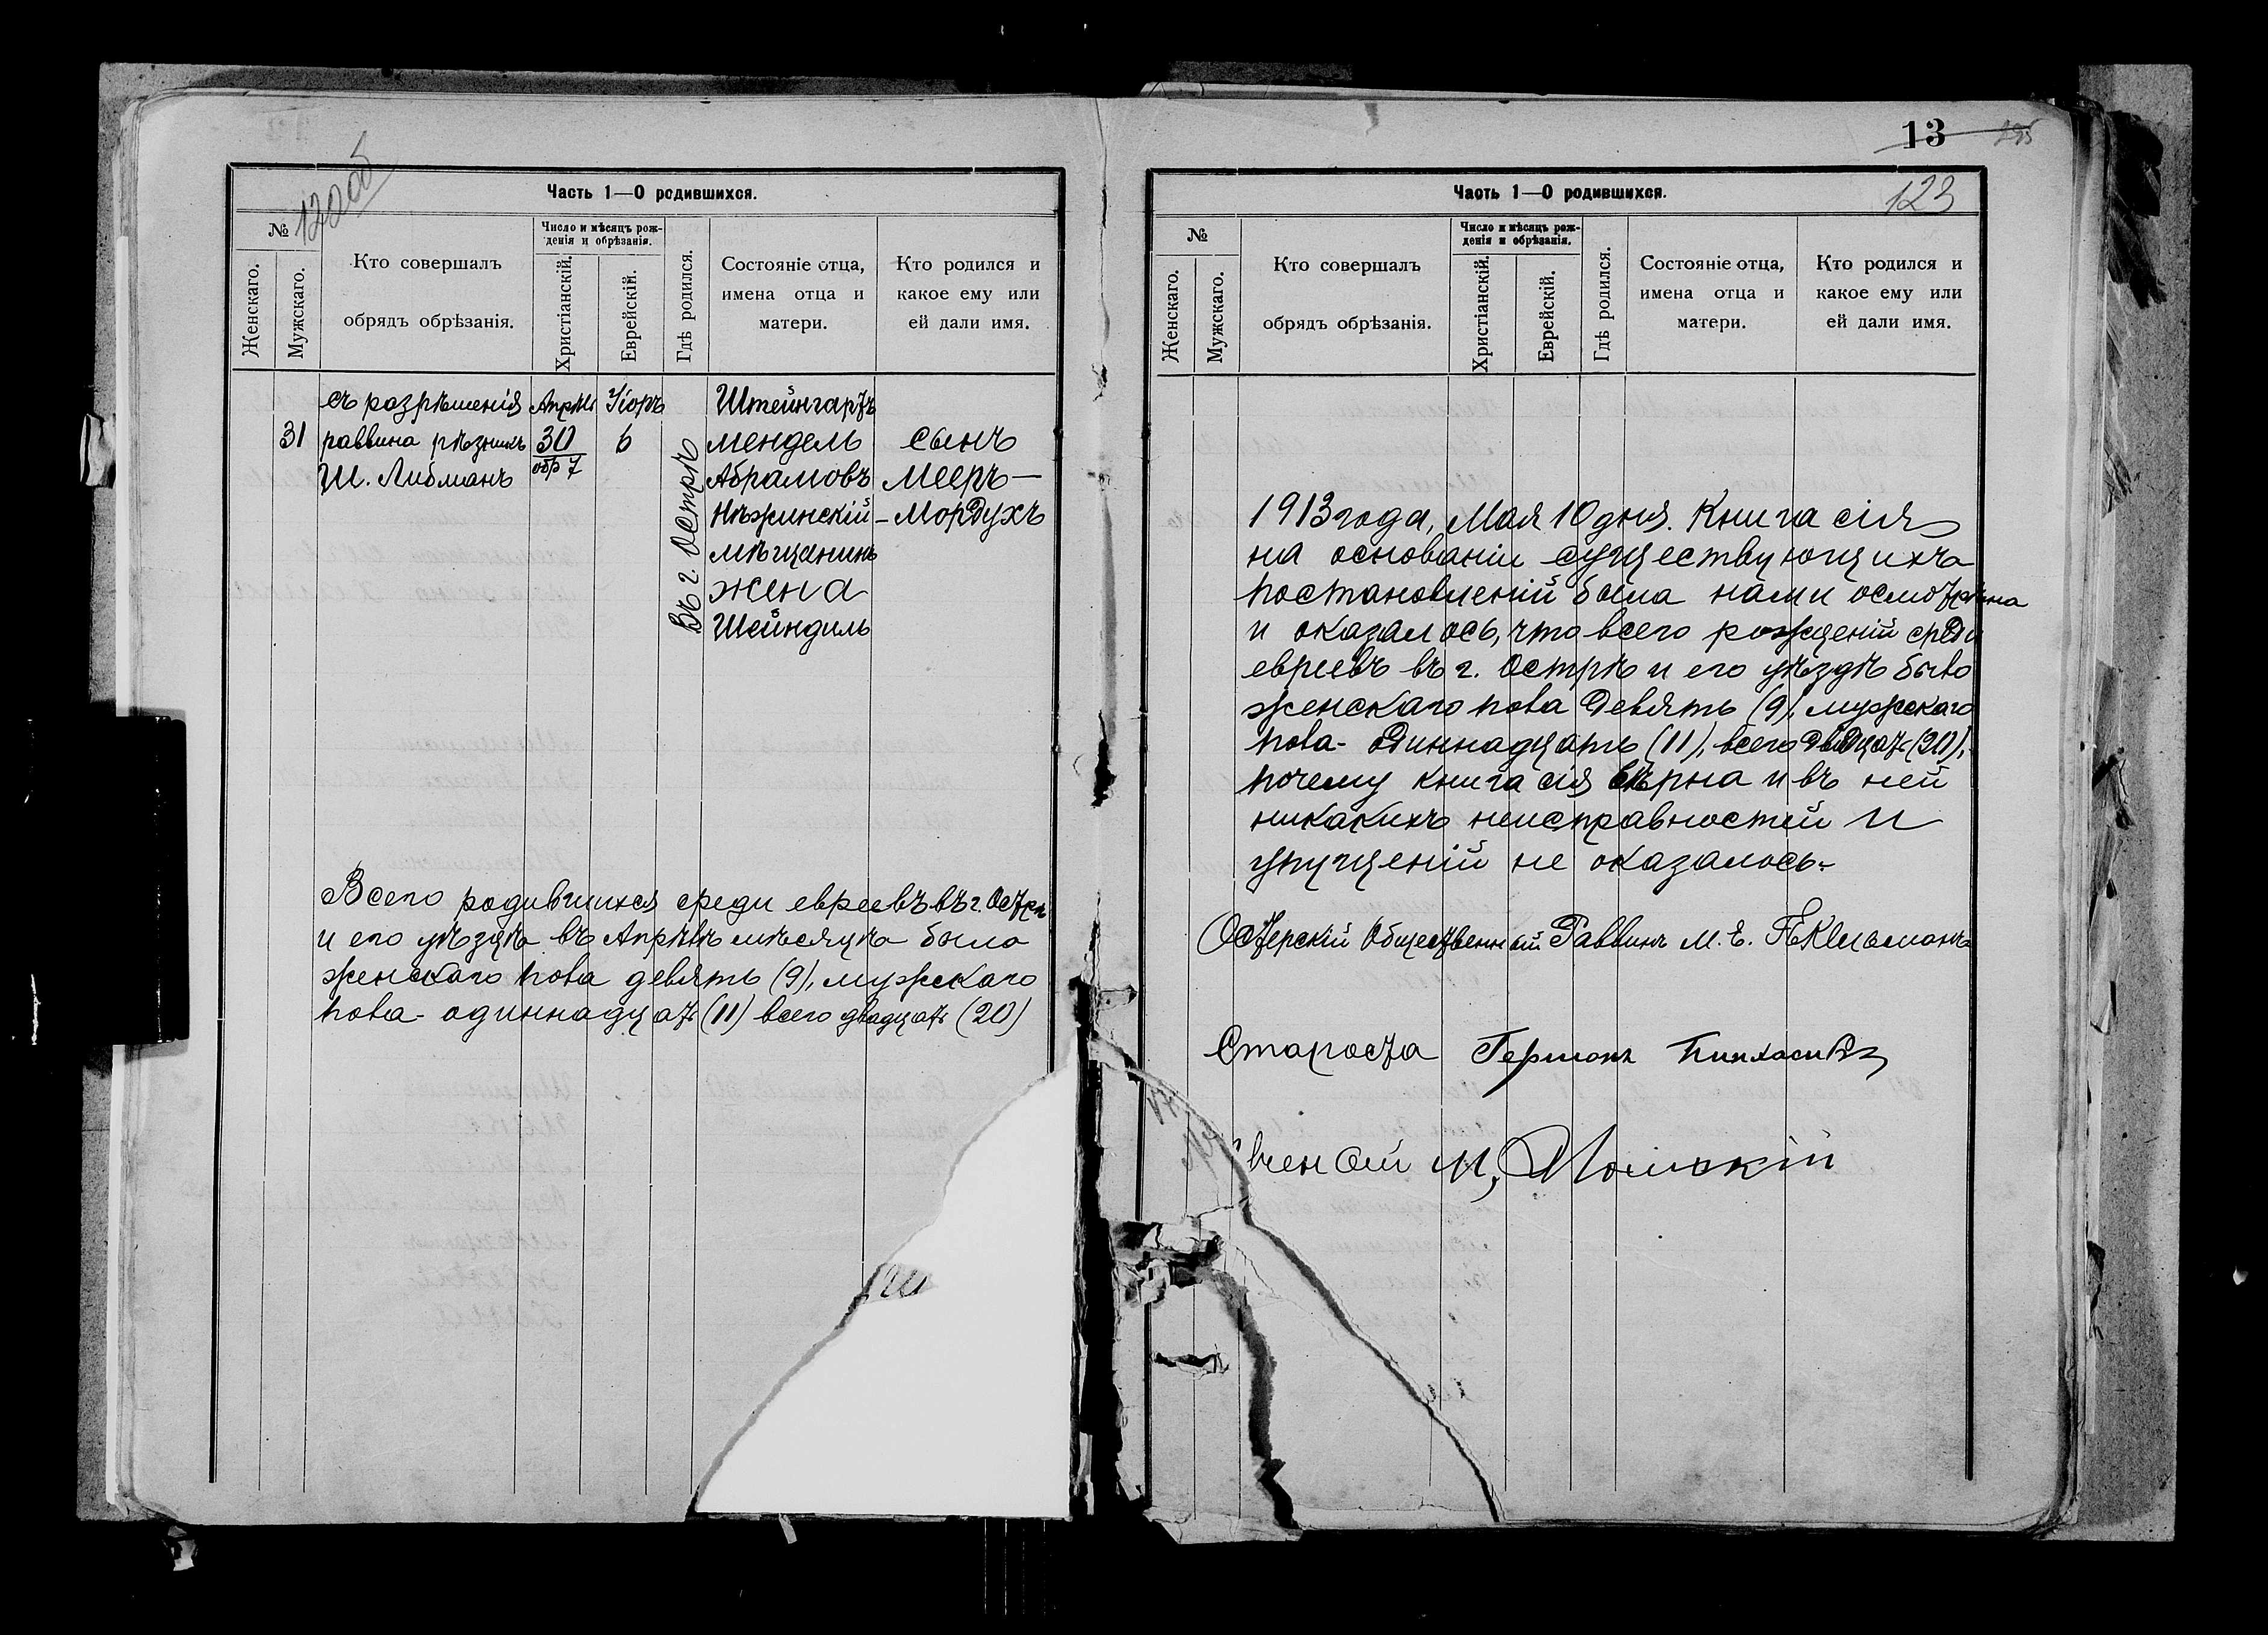 12 об
Часть 1—О родившихся.
№
Женскаго.
Мужскаго.
Кто совершалъ
обрядъ обрѣзанія.
Число и мѣсяцъ рож-
денія и обрѣзанія.
Христіанскій.
Еврейскій.
Гдѣ родился.
Состояніе отца,
имена отца и
матери.
Кто родился и
какое ему или
ей дали имя.
31
съ разрѣшенія
раввина рѣзникъ
Ш. Либманъ
Апрѣль
30
обр 7
Уіоръ
6
Въ г. Острѣ
Штейнгартъ
Мендель
Абрамовъ
Нѣжинскій
мѣщанинъ
жена
Шейндиль
сынъ
Мееръ—
—Мордухъ
Всего родившихся среди евреевъ въ г. Острѣ
и его уѣздѣ въ Апрѣлѣ мѣсяцѣ было
женскаго пола девять (9), мужскаго
пола - одиннадцать (11) всего двадцать (20)
13
123
Часть 1—О родившихся.
№
Женскаго.
Мужскаго.
Кто совершалъ
обрядъ обрѣзанія.
Число и мѣсяцъ рож-
денія и обрѣзанія.
Христіанскій.
Еврейскій.
Гдѣ родился.
Состояніе отца,
имена отца и
матери.
Кто родился и
какое ему или
ей дали имя.
1913 года, Мая 10 дня. Книга сія
на основаніи существующихъ
постановленій была нами осмотрѣна
и оказалось, что всего рожденій среди
евреевъ въ г. Острѣ и его уѣздѣ было
женскаго пола девять (9), мужскаго
пола - одиннадцать (11), всего двадцать (20),
почему книга сія вѣрна и въ ней
никакихъ неисправностей и
упущеній не оказалось.
Остерскій Общественный Раввинъ М. Е.
Староста Германъ
М.